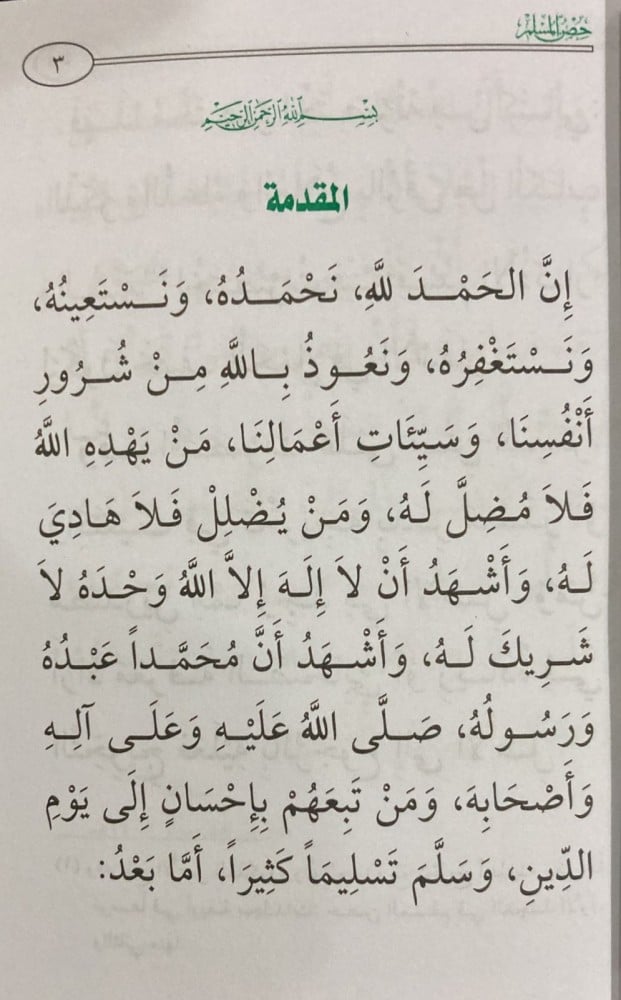 حصن المسلم
٣
بسم الله الرحمن الرحيم
المقدمة
إِنَّ الحَمْـدَ للَّهِ، نَحْمَـدُهُ، وَنَـسْـتَعِينُهُ،
وَنَـسْـتَغْفِرُهُ، وَنَعُوذُ بِـاللَّهِ مِـنْ شُـرُورِ
أَنْفُسِنَا، وَسَيِّئَاتِ أَعْمَالِنَا، مَنْ يَهْدِهِ اللَّهُ
فَلاَ مُضِلَّ لَـهُ، وَمَنْ يُضْلِلْ فَلاَ هَادِيَ
لَـهُ، وَأَشْـهَدُ أَنْ لاَ إِلَـهَ إِلاَّ اللَّهُ وَحْدَهُ لاَ
شَـرِيكَ لَـهُ، وَأَشْـهَدُ أَنَّ مُحَمَّداً عَبْدُهُ
وَرَسُـولُهُ، صَـلَّى اللَّهُ عَلَيْـهِ وَعَلَـى آلِـهِ
وَأَصْحَابِهَ، وَمَنْ تَبِعَهُمْ بِإِحْسَانٍ إِلَى يَوْمِ
الدِّينِ، وَسَلَّمَ تَسْلِيمَاً كَثِيرَاً، أَمَّا بَعْدُ: